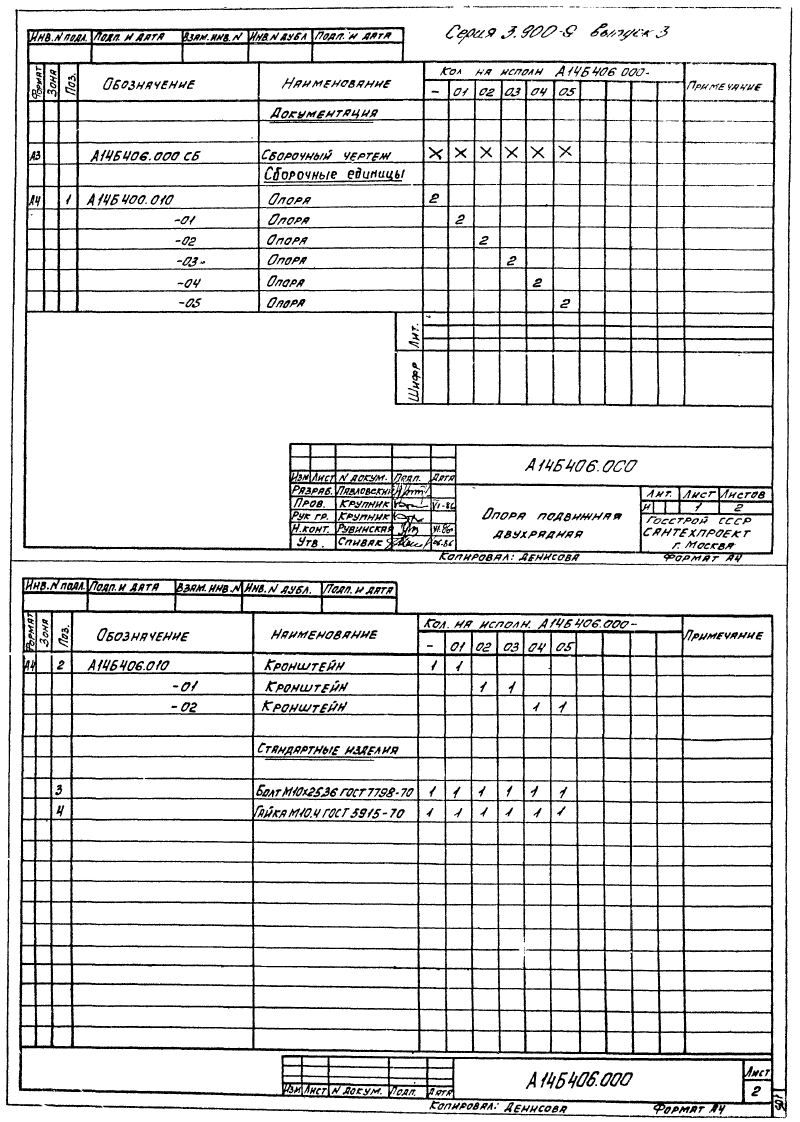 Серия 3.900-9 выпуск 3
Инв.N подл. Подп. и дата Взам.инв.N Инв.N дубл Подп. и дата
Формат Зона Поз. Обозначение Наименование Кол на исполн А14Б406 000- Примечание
- 01 02 03 04 05
Документация
А3 А14Б406.000 СБ Сборочный чертеж X X X X X X
Сборочные единицы
А4 1 А14Б400.010 Опора 2
-01 Опора 2
-02 Опора 2
-03 Опора 2
-04 Опора 2
-05 Опора 2
Лит.
Шифр
А14Б406.000
Изм Лист N докум. Подп. Дата
Разраб. Павловский
Пров. Крупник VI-86
Рук гр. Крупник
Н.конт. Рувинская VI.86
Утв. Спивак 06.86
Опора подвижная
двухрядная
Лит. Лист Листов
И 1 2
Госстрой СССР
Сантехпроект
г. Москва
Копировал: Денисова Формат А4
Инв.N подл. Подп. и дата Взам. инв.N Инв.N дубл. Подп. и дата
Формат Зона Поз. Обозначение Наименование Кол. на исполн. А14Б406.000- Примечание
- 01 02 03 04 05
А4 2 А14Б406.010 Кронштейн 1 1
-01 Кронштейн 1 1
-02 Кронштейн 1 1
Стандартные изделия
3 Болт М10х25.36 ГОСТ 7798-70 1 1 1 1 1 1
4 Гайка М10.4 ГОСТ 5915-70 1 1 1 1 1 1
Изм Лист N докум. Подп. Дата
А14Б406.000
Лист
2
Копировал: Денисова Формат А4